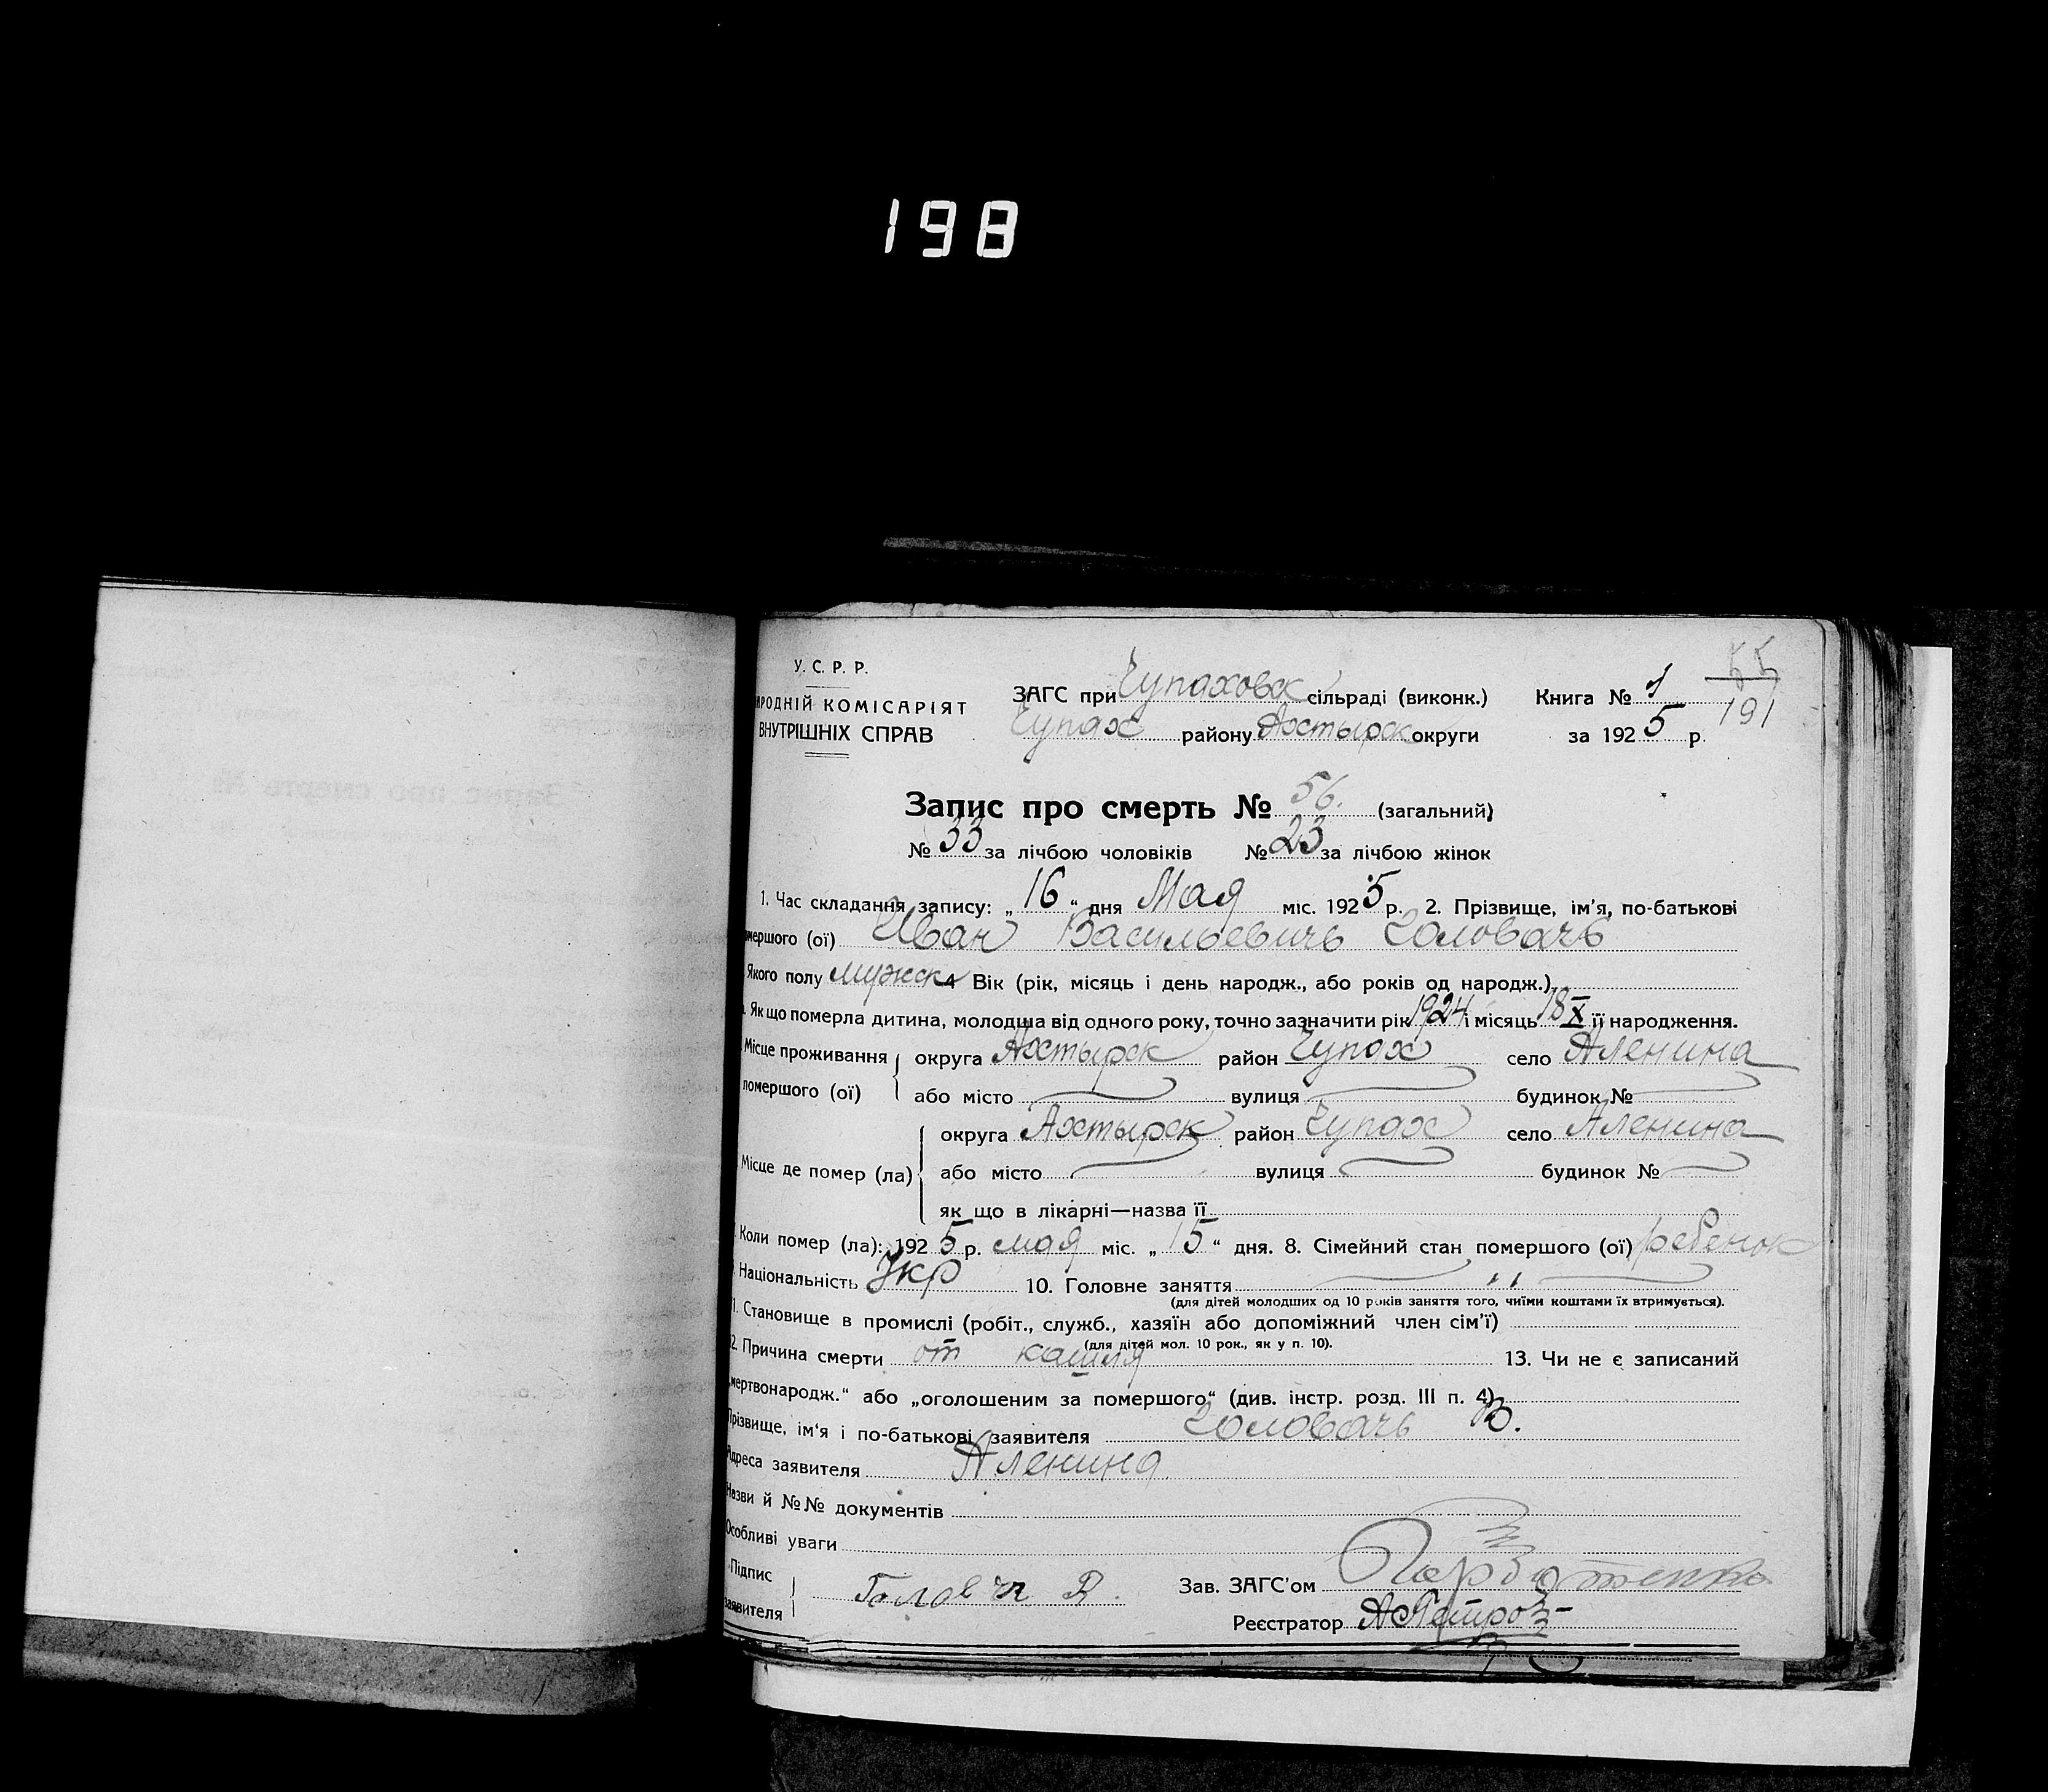 198
55
191
У. С. Р. Р.
РОДНІЙ КОМІСАРІЯТ
ВНУТРІШНІХ СПРАВ
ЗАГС при Чупаховск сільраді (виконк.) Книга № 1
Чупах району Ахтырск округи за 1925 р.
Запис про смерть № 56. (загальний)
№ 33 за лічбою чоловіків № 23 за лічбою жінок
1. Час складання запису: „16“ дня Мая міс. 1925 р. 2. Прізвище, ім'я, по-батькові
мершого (ої) Иван Васильевичь Головачь
Якого полу мужск 4 Вік (рік, місяць і день народж., або років од народж.)
Як що померла дитина, молодша від одного року, точно зазначити рік 1924 і місяць 18 X її народження.
Місце проживання округа Ахтырск район Чупах село Аленина
помершого (ої) або місто вулиця будинок №
округа Ахтырск район Чупах село Аленина
Місце де помер (ла) або місто вулиця будинок №
як що в лікарні—назва її
Коли помер (ла): 1925 р. мая міс. „15“ дня. 8. Сімейний стан помершого (ої) ребенок
Національність Укр 10. Головне заняття
(для дітей молодших од 10 років заняття того, чиїми коштами їх втримується).
1. Становище в промислі (робіт., служб., хазяїн або допоміжний член сім'ї)
(для дітей мол. 10 рок., як у п. 10).
2. Причина смерти от кашля 13. Чи не є записаний
„мертвонародж.“ або „оголошеним за помершого“ (див. інстр. розд. III п. 4)
Прізвище, ім'я і по-батькові заявителя Головачь В.
Адреса заявителя Аленина
Назви й №№ документів
Особливі уваги
Підпис
заявителя Головач В.
Зав. ЗАГС'ом
Реєстратор